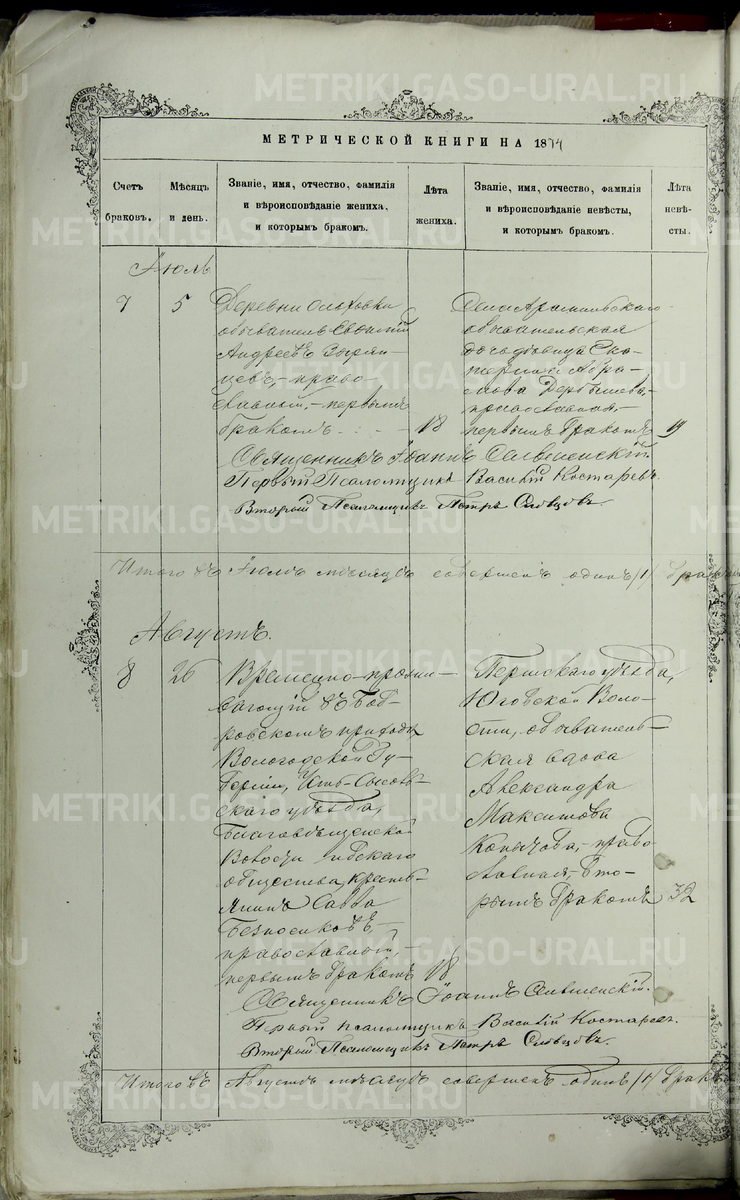 МЕТРИЧЕСКОЙ КНИГИ НА 1874
Счетъ браковъ.
Мѣсяцъ и день.
Званіе, имя, отчество, фамилія
и вѣроисповѣданіе жениха,
и которымъ бракомъ.
Лѣта жениха.
Званіе, имя, отчество, фамилія
и вѣроисповѣданіе невѣсты,
и которымъ бракомъ.
Лѣта невѣ-
сты.
Іюль
7 5
Деревни Ольховки
обыватель Евѳимій
Андреевъ Сырян-
цевъ, право
славный, первымъ
бракомъ 18
Села Арамильскаго
обывательская
дочь девица Ека-
терина Абра-
мова Дербышева,
православная,
первымъ бракомъ 19
Священникъ Іоаннъ
Первый Псаломщикъ Василій Костаревъ.
Второй Псаломщикъ Петръ Словцовъ.
Итого въ Іюлѣ мѣсяцѣ совершенъ одинъ /1/ бракъ
Августъ.
8 26
Временно-прожи-
вающій въ Боб-
ровскомъ приходѣ
Вологодской Гу-
берніи, Усть-Сысоль-
скаго уѣзда,
Благовѣщенской
Волости
общества, кресть-
янинъ Савва
Безносиковъ
православный,
первымъ бракомъ 18
Пермскаго уѣзда,
Юговской Воло-
сти, обыватель-
ская вдова
Александра
Максимова
Копычова, право
славная, вто-
рымъ бракомъ 32
Священникъ Іоаннъ
Первый псаломщикъ Василій Костаревъ.
Второй Псаломщикъ Петръ Словцовъ.
Итого въ Августѣ мѣсяцѣ совершенъ одинъ /1/ бракъ
METRIKI.GASO-URAL.RU